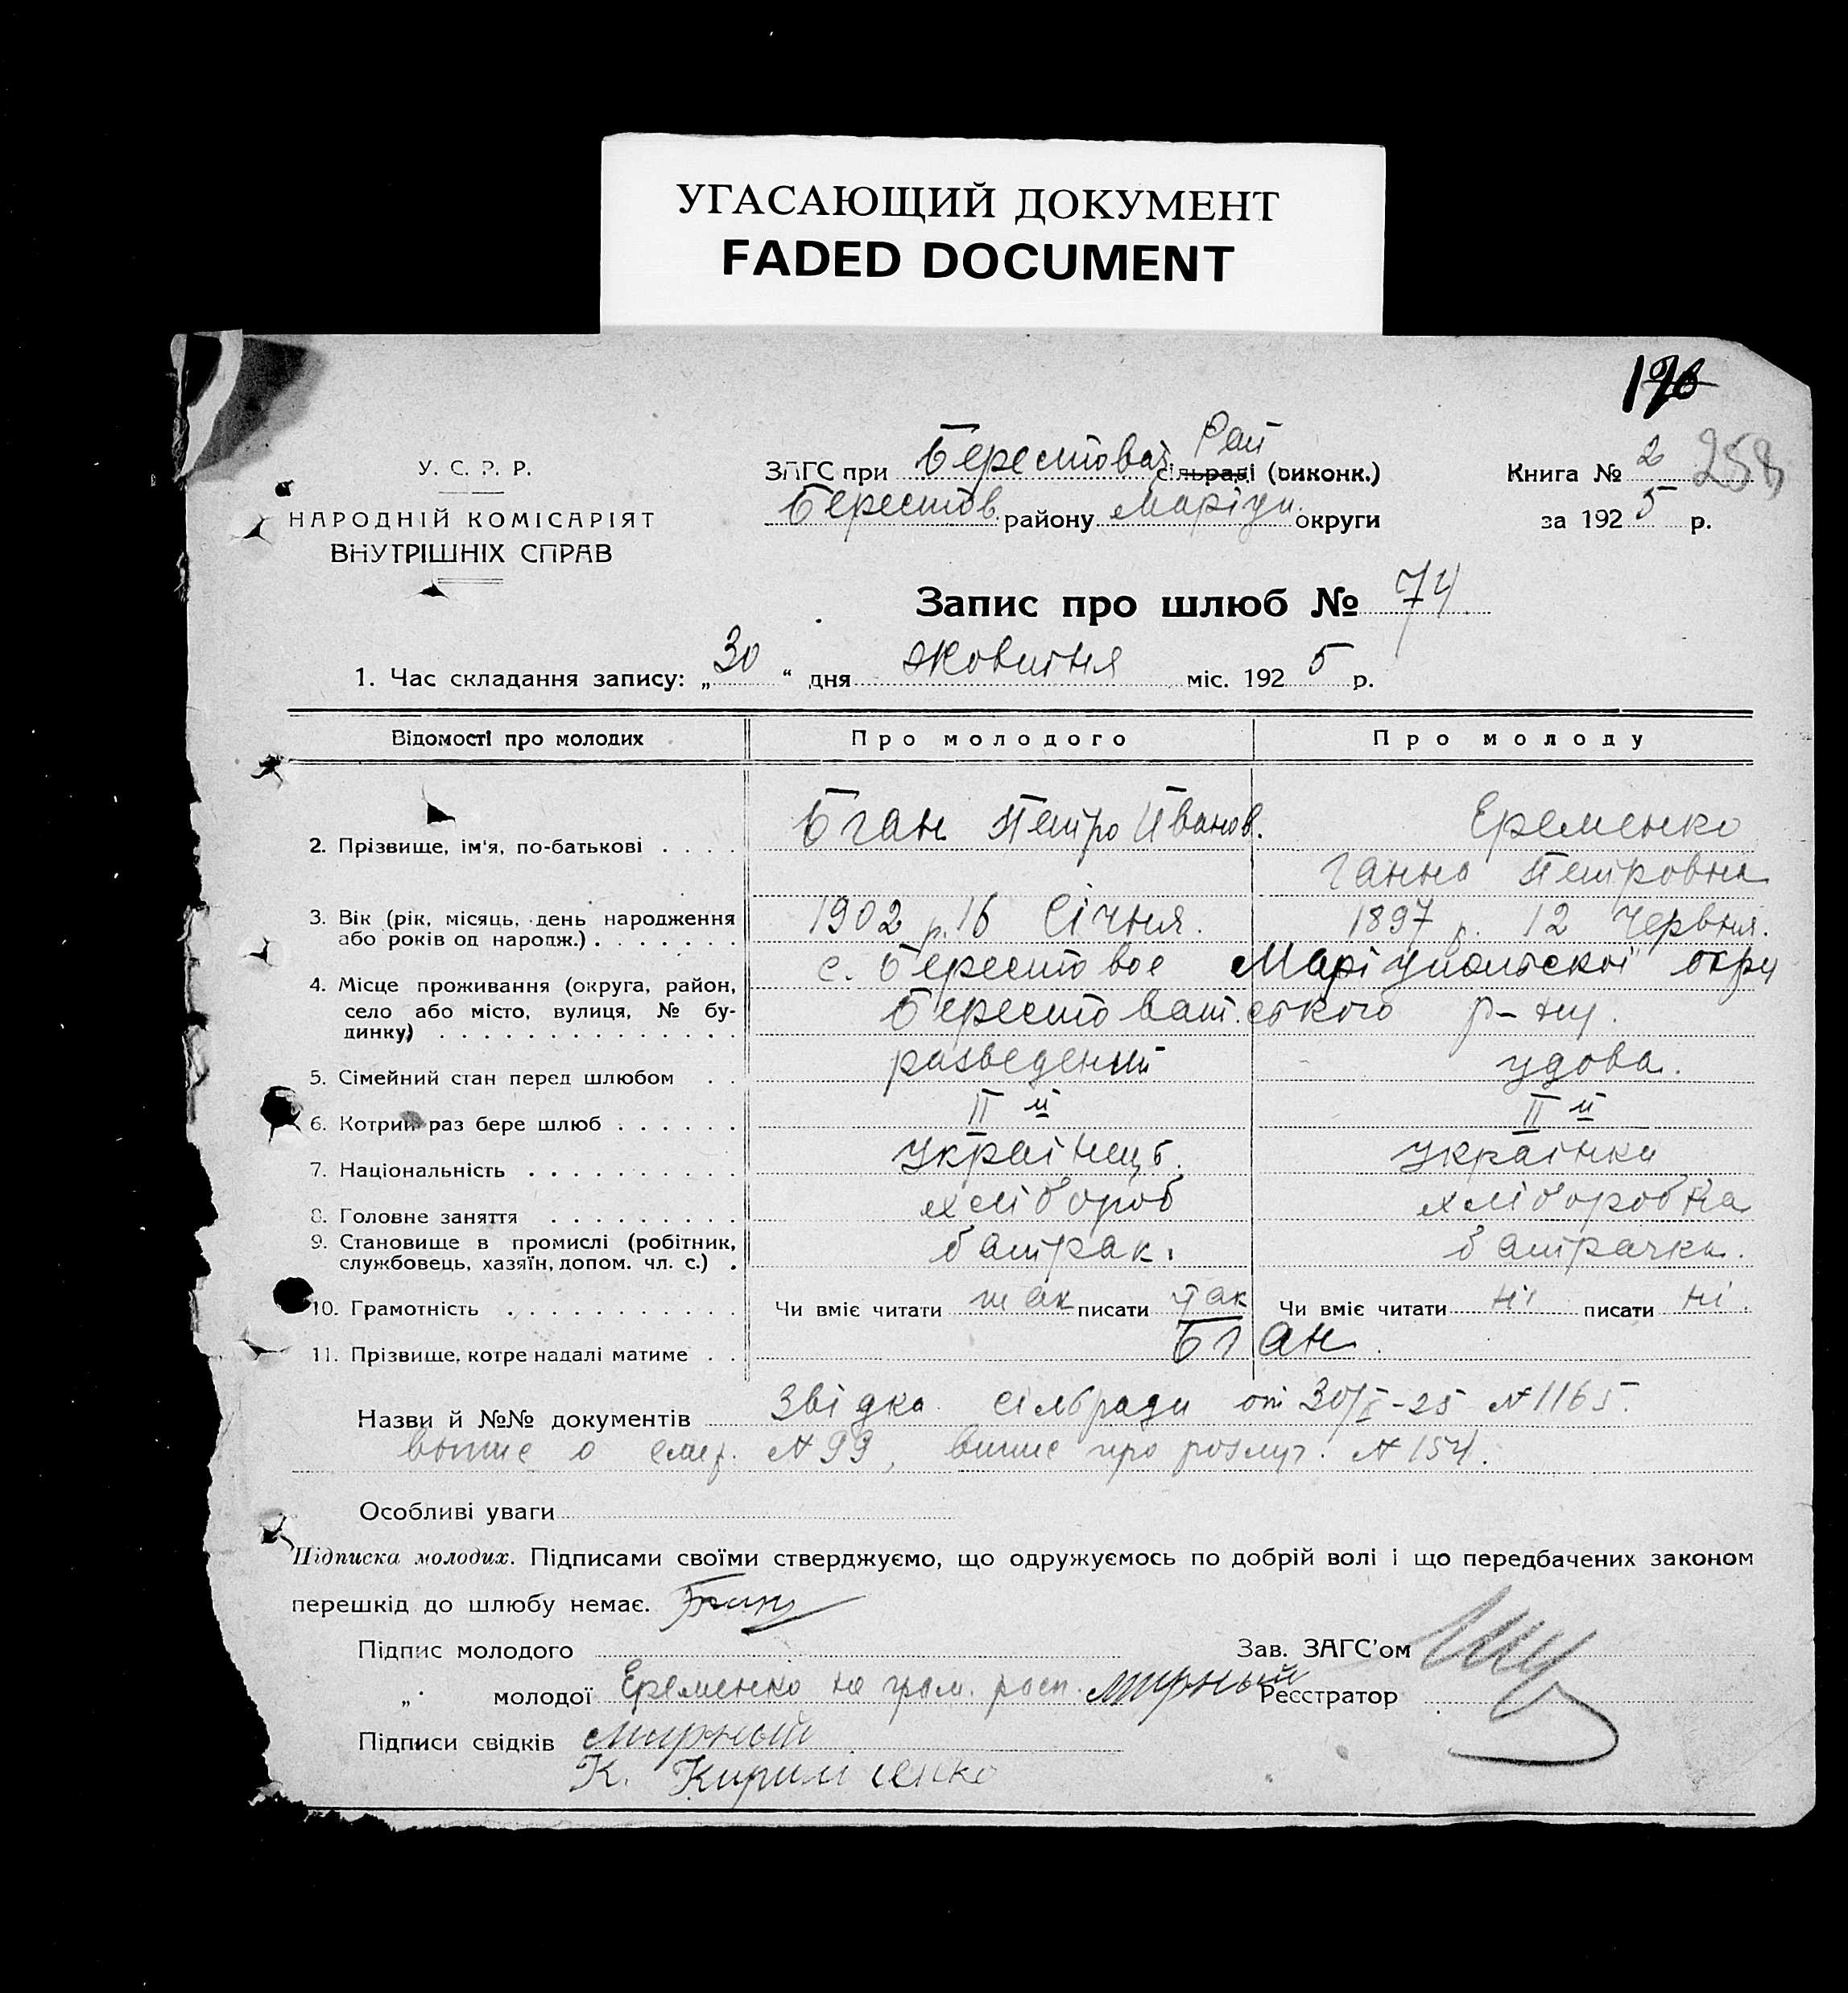 УГАСАЮЩИЙ ДОКУМЕНТ
FADED DOCUMENT
У. С. Р. Р.
НАРОДНІЙ КОМІСАРІЯТ
ВНУТРІШНІХ СПРАВ
ЗАГС при Берестовач. Рай сільраді (виконк.)
Берестов. району Маріуп. округи
Книга № 2 258
за 1925 р.
Запис про шлюб № 74.
1. Час складання запису: „30“ дня жовтня міс. 1925 р.
Відомості про молодих Про молодого Про молоду
2. Прізвище, ім'я, по-батькові . . . . Бган Петро Иванов. Еременко
Ганна Петровна
3. Вік (рік, місяць, день народження або років од народж.) . . . . . . . 1902 р. 16 Січня. 1897 р. 12 Червня.
4. Місце проживання (округа, район, село або місто, вулиця, № будинку) . . . . . . . . . . . . . . с. Берестовое Маріупольскої окру
Берестоват.ського р-ну.
5. Сімейний стан перед шлюбом . . разведений удова.
6. Котрий раз бере шлюб . . . . . . II й II й
7. Національність . . . . . . . . . . українець. українка
8. Головне заняття . . . . . . . . . хлібороб хліборобка
9. Становище в промислі (робітник, службовець, хазяїн, допом. чл. с.) . батрак. батрачка.
10. Грамотність . . . . . . . . . . . Чи вміє читати так писати так Чи вміє читати ні писати ні.
11. Прізвище, котре надалі матиме . . Бган.
Назви й №№ документів Звідка сільради от 30/X-25 № 1165.
выпис о смер. № 99, випис про розлуч. № 154.
Особливі уваги
Підписка молодих. Підписами своїми стверджуємо, що одружуємось по добрій волі і що передбачених законом
перешкід до шлюбу немає.
Підпис молодого Зав. ЗАГС'ом
„ молодої Еременко не грам. расп. Мирный Реєстратор
Підписи свідків Мирный
К. Кириленко